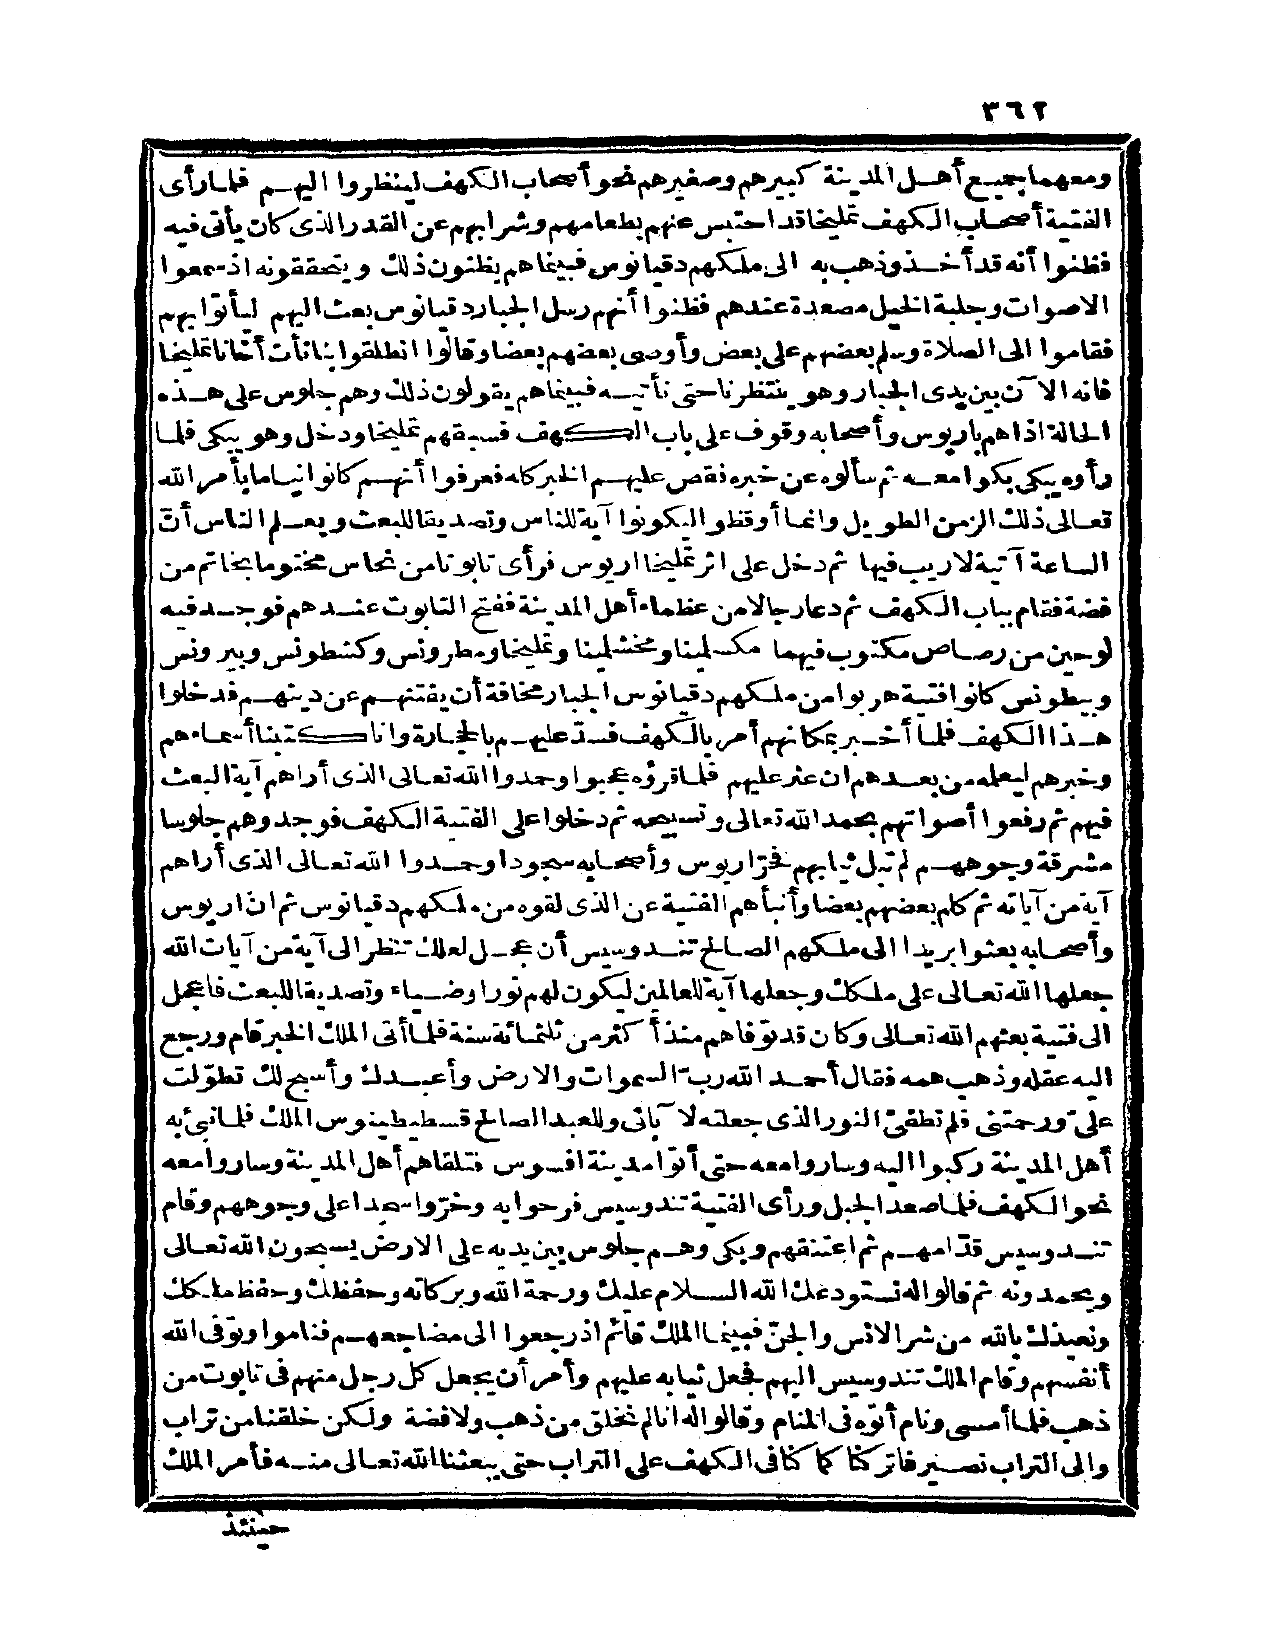 ٣٦٢
ومعهما جميع أهل المدينة كبيرهم وصغيرهم نحو أصحاب الكهف لينظروا اليهم فلما رأى
الفتية أصحاب الكهف تمليخا قد احتبس عنهم بطعامهم وشرابهم عن القدر الذى كان يأتى فيه
فظنوا أنه قد أخذ وذهب به الى ملكهم دقيانوس فبينما هم يظنون ذلك ويتحققونه اذ سمعوا
الاصوات وجلبة الخيل مصعدة عندهم فظنوا أنهم رسل الجبار دقيانوس بعث اليهم ليأتوا بهم
فقاموا الى الصلاة وسلم بعضهم على بعض وأوصى بعضهم بعضا وقالوا انطلقوا بنا نأت أخانا تمليخا
فانه الآن بين يدى الجبار وهو ينتظرنا حتى نأتيه فبينما هم يقولون ذلك وهم جلوس على هذه
الحالة اذا هم باريوس وأصحابه وقوف على باب الكهف فسبقهم تمليخا ودخل وهو يبكى فلما
رأوه يبكى بكوا معه ثم سألوه عن خبره فقص عليهم الخبر كله فعرفوا أنهم كانوا نياما بأمر الله
تعالى ذلك الزمن الطويل وانما أوقظوا ليكونوا آية للناس وتصديقا للبعث ويعلم الناس أن
الساعة آتية لا ريب فيها ثم دخل على اثر تمليخا اريوس فرأى تابوتا من نحاس مختوما بخاتم من
فضة فقام بباب الكهف ثم دعا رجالا من عظماء أهل المدينة ففتح التابوت عندهم فوجد فيه
لوحين من رصاص مكتوب فيهما مكسلمينا ومخشلمينا وتمليخا ومطرونس وكشطونس وبيرونس
وبيطونس كانوا فتية هربوا من ملكهم دقيانوس الجبار مخافة أن يفتنهم عن دينهم فدخلوا
هذا الكهف فلما أخبر بمكانهم أمر بالكهف فسد عليهم بالحجارة وانا كتبنا أسماءهم
وخبرهم ليعلمه من بعدهم ان عثر عليهم فلما قرؤه عجبوا وحمدوا الله تعالى الذى أراهم آية البعث
فيهم ثم رفعوا أصواتهم بحمد الله تعالى وتسبيحه ثم دخلوا على الفتية الكهف فوجدوهم جلوسا
مشرقة وجوههم لم تبل ثيابهم فخرّ اريوس وأصحابه سجودا وحمدوا الله تعالى الذى أراهم
آية من آياته ثم كلم بعضهم بعضا وأنبأهم الفتية عن الذى لقوه من ملكهم دقيانوس ثم ان اريوس
وأصحابه بعثوا بريدا الى ملكهم الصالح تندوسيس أن عجل لعلك تنظر الى آية من آيات الله
جعلها الله تعالى على ملكك وجعلها آية للعالمين ليكون لهم نورا وضياء وتصديقا للبعث فاعجل
الى فتية بعثهم الله تعالى وكان قد توفاهم منذ أكثر من ثلثمائة سنة فلما أتى الملك الخبر قام ورجع
اليه عقله وذهب همه فقال أحمد الله رب السموات والارض وأعبدك وأسبح لك تطوّلت
علىّ ورحمتنى فلم تطفئ النور الذى جعلته لآبائى وللعبد الصالح قسطيطينوس الملك فلما نبئ به
أهل المدينة ركبوا اليه وساروا معه حتى أتوا مدينة افسوس فتلقاهم أهل المدينة وساروا معه
نحو الكهف فلما صعد الجبل ورأى الفتية تندوسيس فرحوا به وخرّوا سجدا على وجوههم وقام
تندوسيس قدّامهم ثم اعتنقهم وبكى وهم جلوس بين يديه على الارض يسبحون الله تعالى
ويحمدونه ثم قالوا له نستودعك الله السلام عليك ورحمة الله وبركاته وحفظك وحفظ ملكك
ونعيذك بالله من شر الانس والجنّ فبينما الملك قائم اذ رجعوا الى مضاجعهم فناموا وتوفى الله
أنفسهم وقام الملك تندوسيس اليهم فجعل ثيابه عليهم وأمر أن يجعل كل رجل منهم فى تابوت من
ذهب فلما أمسى ونام أتوه فى المنام وقالوا له انا لم نخلق من ذهب ولا فضة ولكن خلقنا من تراب
والى التراب نصير فاتركنا كما كنا فى الكهف على التراب حتى يبعثنا الله تعالى منه فأمر الملك
حينئذ